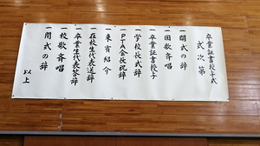 卒業証書授与式
式次第
一開式の辞
一国歌斉唱
一卒業証書授与
一学校長式辞
一PTA会長祝辞
一来賓紹介
一在校生代表送辞
一卒業生代表答辞
一校歌斉唱
一閉式の辞
以上